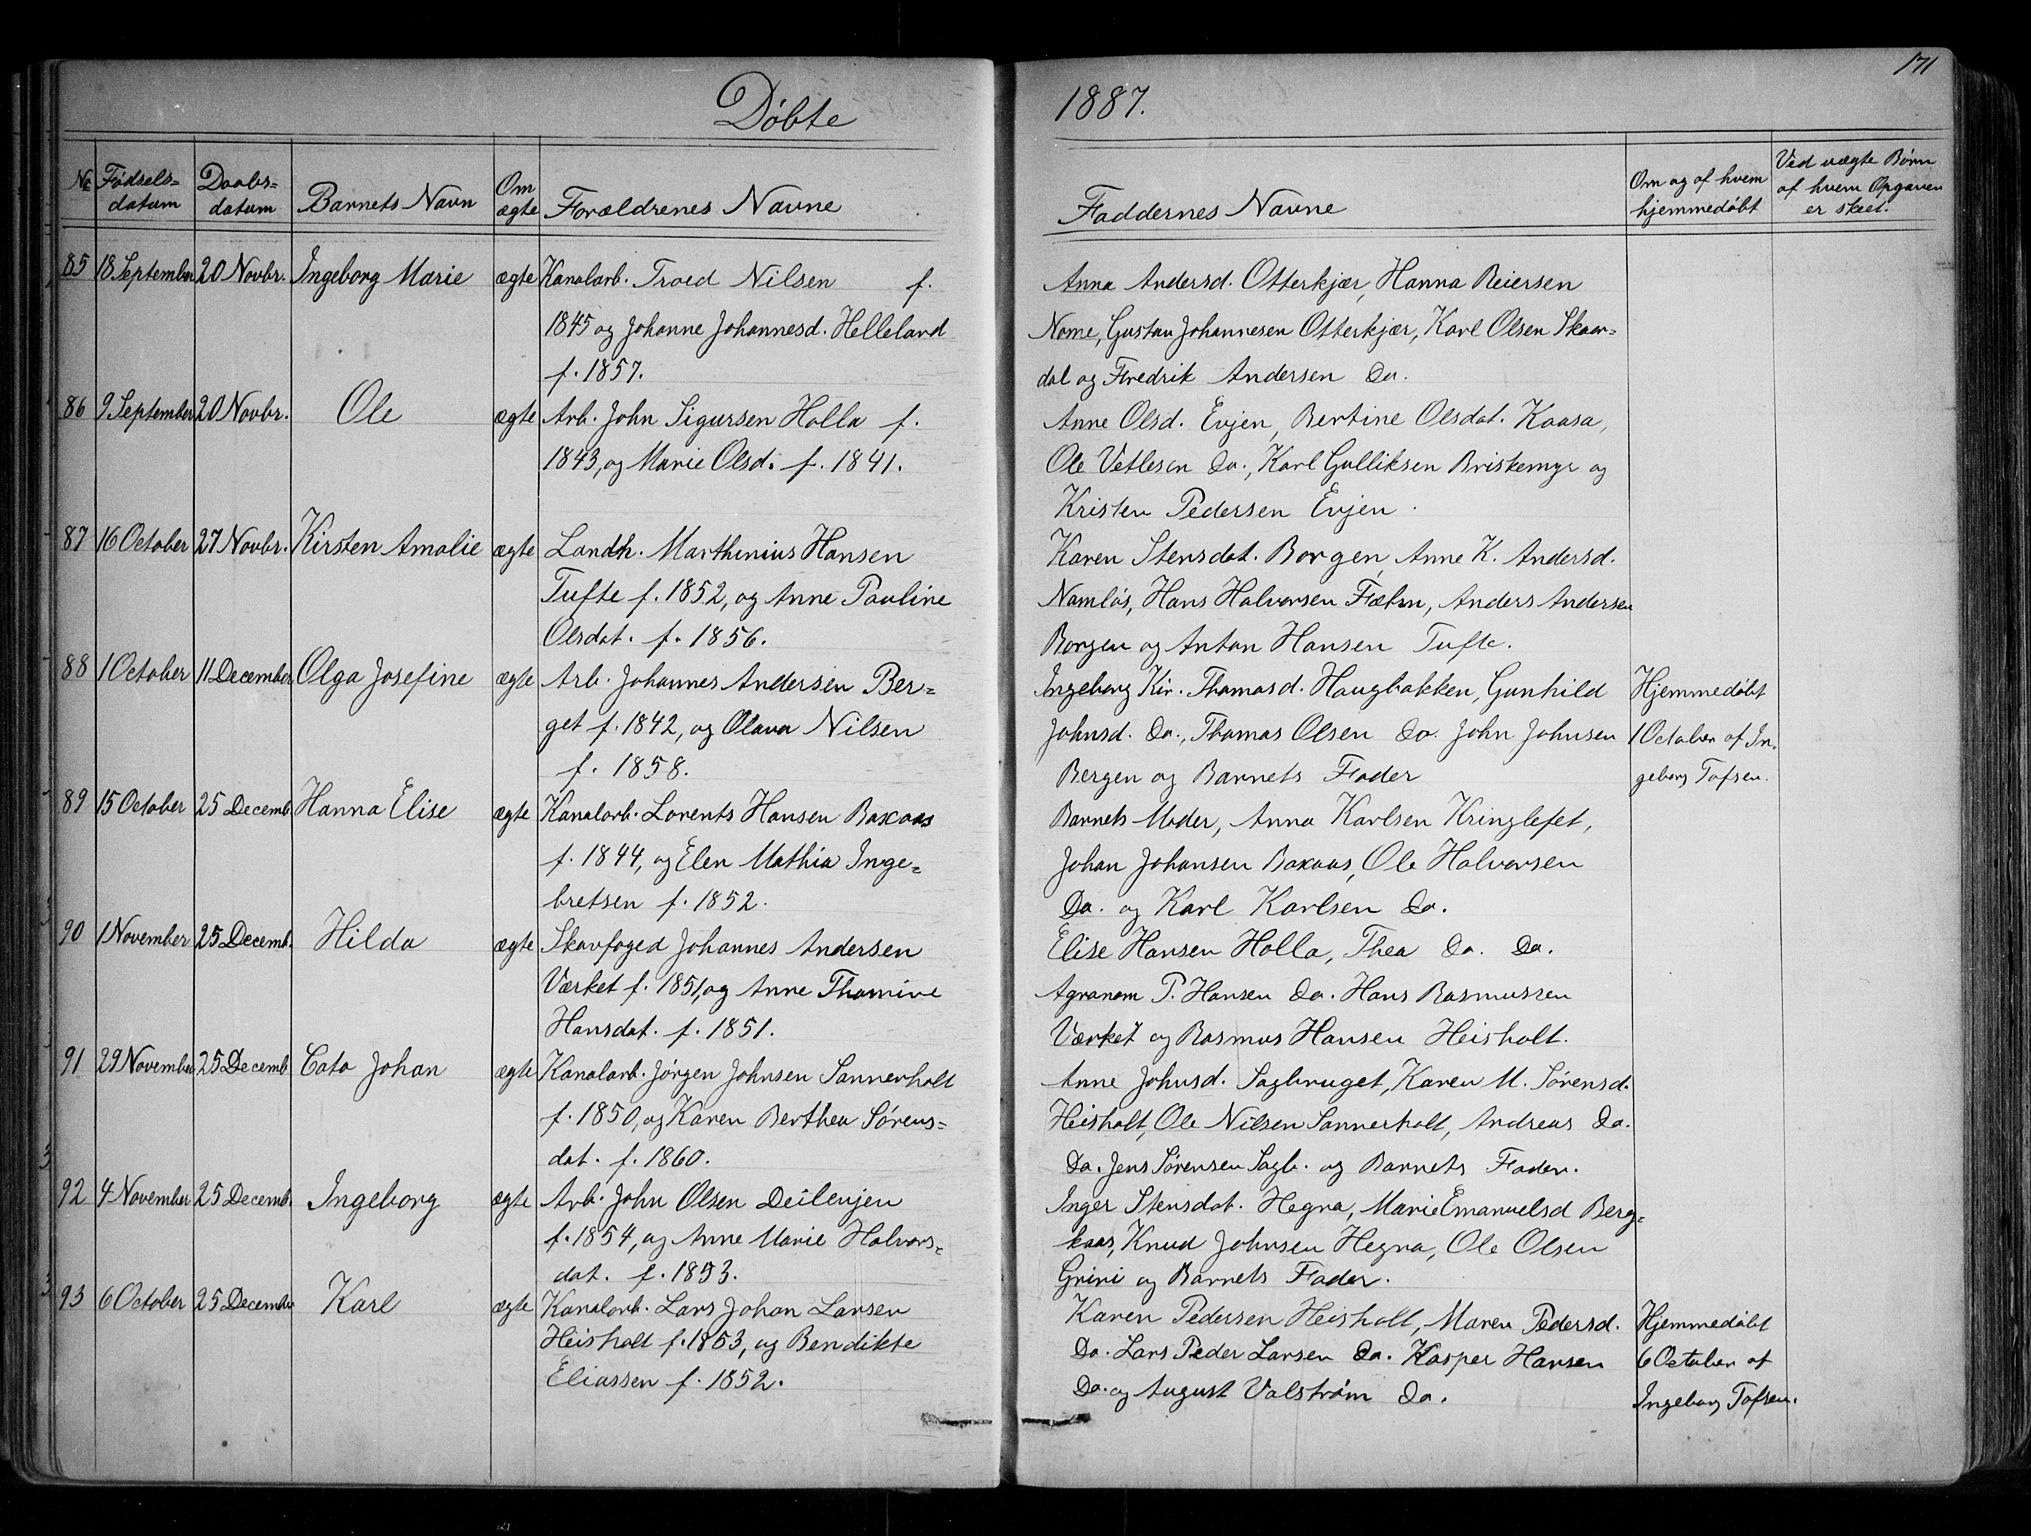 171
Døbte 1887.
No Fødsels= datum
Daabs= datum
Barnets Navn
Om ægte
Forældrenes Navne
Faddernes Navne
Om og af hvem hjemmedøbt
Ved uægte Børn af hvem Opgaven er skeet.
85 18 September 20 Novbr. Ingeborg Marie ægte Kanalarb. Troed Nilsen f.
1845 og Johanne Johannesd. Helleland
f. 1857.
Anna Andersd. Otterkjær, Hanna Reiersen
Nome, Gustav Johannesen Otterkjær, Karl Olsen Skaar=
dal og Fredrik Andersen Do.
86 9 September 20 Novbr. Ole ægte Arb. John Sigursen Holla f.
1843, og Marie Olsd. f. 1841.
Anne Olsd. Evjen, Bertine Olsdat. Kaasa,
Ole Vetlesen Do., Karl Gulliksen Briskemyr og
Kristen Pedersen Evjen.
87 16 October 27 Novbr. Kirsten Amalie ægte Landh. Marthinius Hansen
Tufte f. 1852, og Anne Pauline
Olsdat. f. 1856.
Karen Stensdat. Borgen, Anne K. Andersd.
Namløs, Hans Halvorsen Fæhn, Anders Andersen
Borgen og Anton Hansen Tufte.
88 1 October 11 December Olga Josefine ægte Arb. Johannes Andersen Ber=
get f. 1842, og Olava Nilsen
f. 1858.
Ingeborg Kir. Thomasd. Haugbakken, Gunhild
Johnsd. Do., Thomas Olsen Do. John Johnsen
Bergen og Barnets Fader
Hjemmedøbt
1 October af In=
geborg Tofsen.
89 15 October 25 Decemb. Hanna Elise ægte Kanalarb. Lorents Hansen Baxaas
f. 1844, og Elen Mathia Inge=
bretsen f. 1852.
Barnets Moder, Anna Karlsen Kringlefet,
Johan Johansen Baxaas, Ole Halvorsen
Do. og Karl Karlsen Do.
90 1 November 25 Decemb. Hilda ægte Skovfoged Johannes Andersen
Værket f. 1851, og Anne Thomine
Hansdat. f. 1851.
Elise Hansen Holla, Thea Do. Do.
Agronom P. Hansen Do. Hans Rasmussen
Værket og Rasmus Hansen Heisholt.
91 29 November 25 Decemb. Cato Johan ægte Kanalarb. Jørgen Johnsen Sannerholt
f. 1850, og Karen Berthea Sørens=
dat. f. 1860.
Anne Johnsd. Sagbruget, Karen M. Sørensd.
Heisholt, Ole Nilsen Sannerholt, Andreas Do.
Do. Jens Sørensen Sagb. og Barnets Fader.
92 4 November 25 Decemb. Ingeborg ægte Arb. John Olsen Deilenjen
f. 1854, og Anne Marie Halvors=
dat. f. 1853.
Inger Stensdat. Hegna, Marie Emanuelsd Berg=
kaas, Knud Johnsen Hegna, Ole Olsen
Grini og Barnets Fader.
93 6 October 25 December Karl ægte Kanalarb. Lars Johan Larsen
Heisholt f. 1853, og Bendikte
Eliassen f. 1852.
Karen Pedersen Heisholt, Maren Pedersd.
Do. Lars Peder Larsen Do. Kasper Hansen
Do. og August Valstrøm Do.
Hjemmedøbt
6 October af
Ingeborg Tofsen.